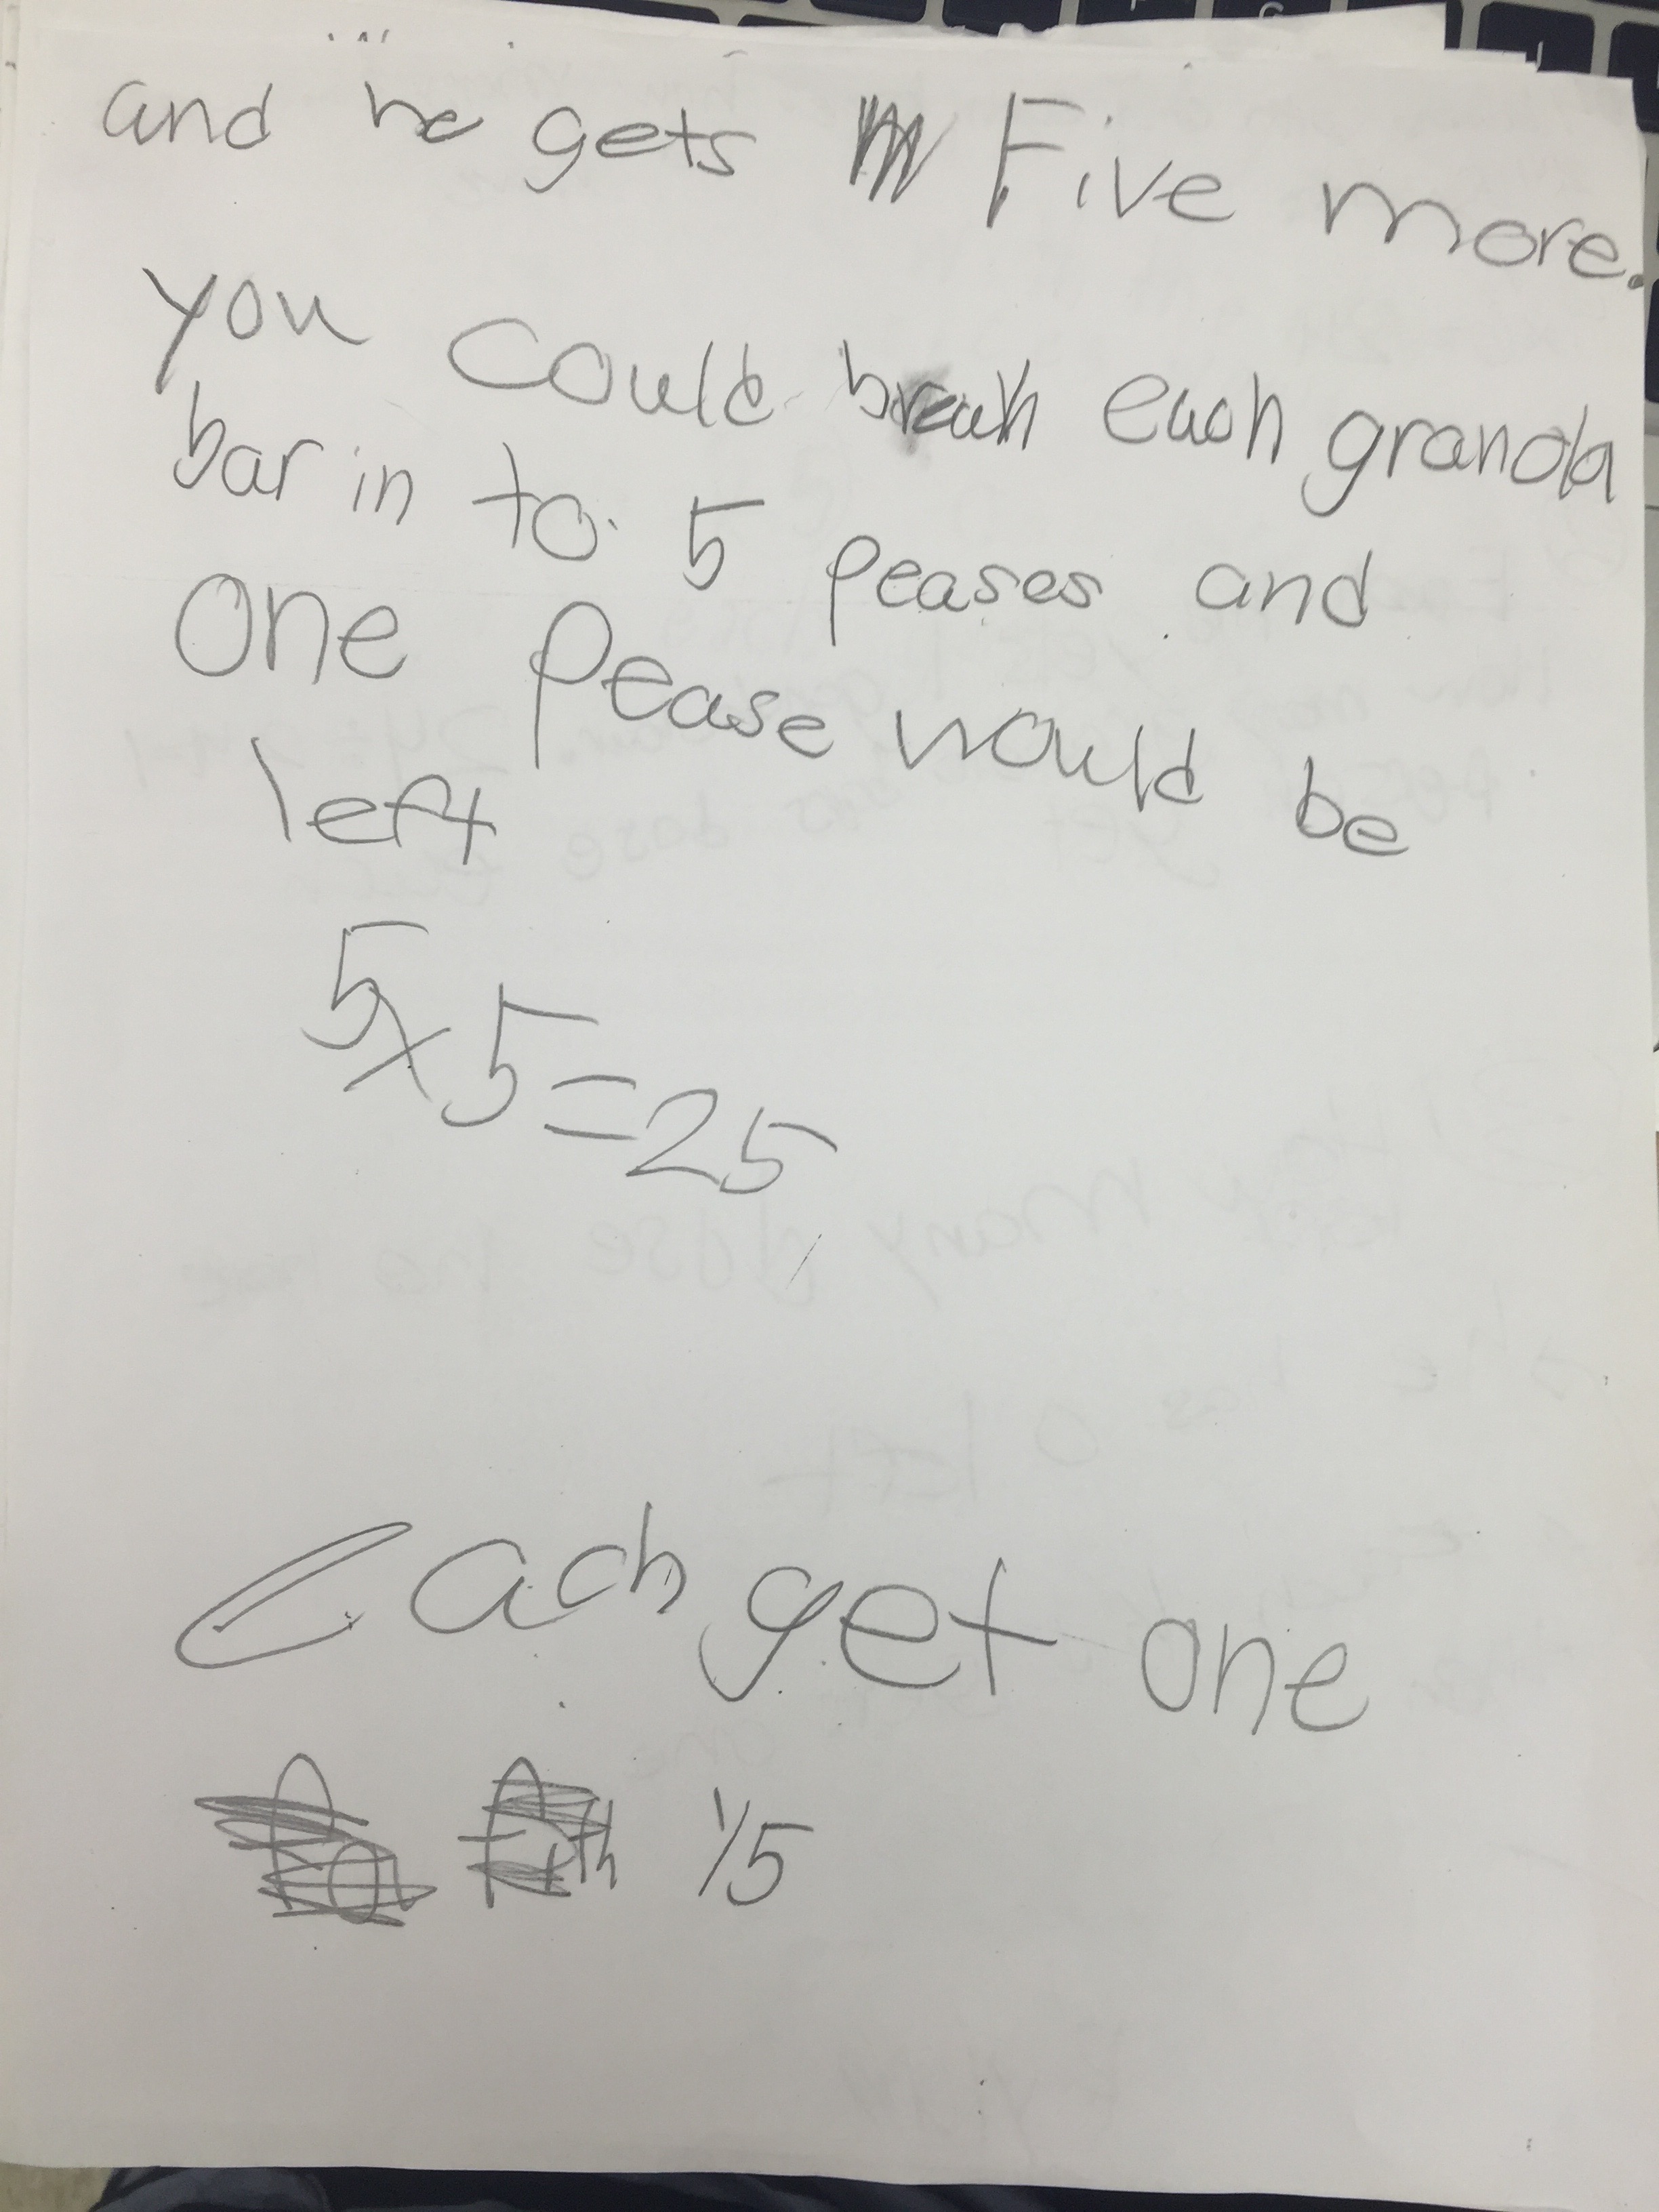 and he gets Five more.
you could break each granola
bar in to 5 peases and
one pease would be
left
5x5=25
each get one
1/5